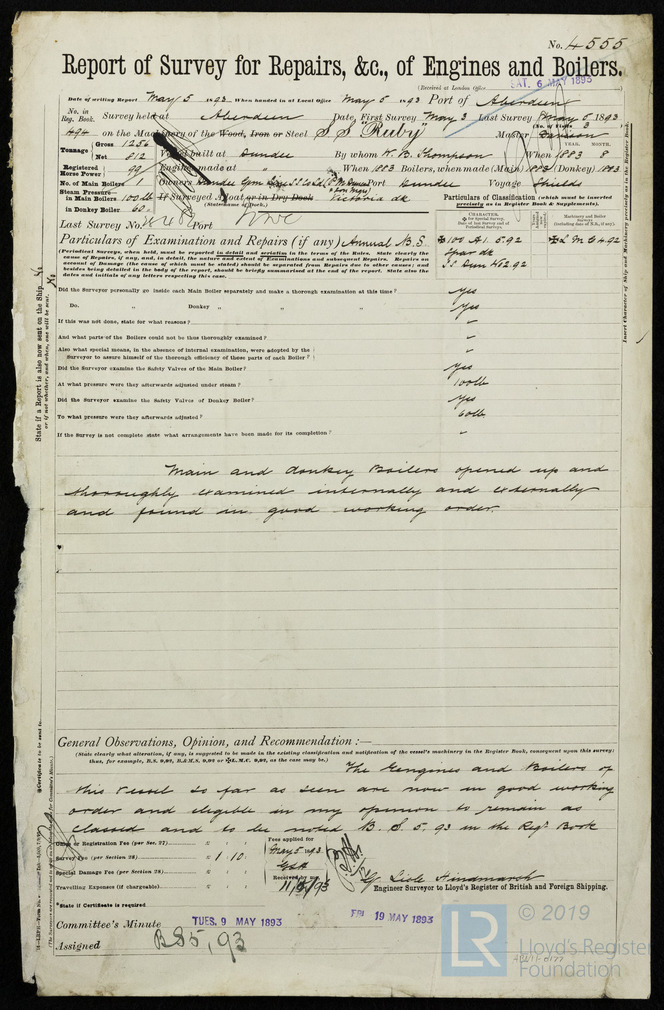 No. 4555
Report of Survey for Repairs, &c., of Engines and Boilers.
(Received at London Office SAT. 6 MAY 1893
Date of writing Report May 5 1893 When handed in at Local Office May 5 1893 Port of Aberdeen
No. in Reg. Book. Survey held at Aberdeen Date, First Survey May 3 Last Survey May 5 1893
(No. of Visits 3
494 on the Machinery of the Wood, Iron or Steel S S "Ruby" Master
YEAR. MONTH.
Tonnage Gross 1256 Net 812 Vessel built at Dundee By whom W. B. Thompson When 1883 8
Registered Horse Power 99 Engines made at " When 1883 Boilers, when made (Main) 1883 (Donkey) 1883
No. of Main Boilers 1 Owners Dundee Gem Line S S Co Ld Port Dundee Voyage Shields
Steam Pressure in Main Boilers 100 lb If Surveyed Afloat or in Dry Dock Victoria dk
(State name of Dock.)
in Donkey Boiler 60
Particulars of Classification (which must be inserted precisely as in Register Book & Supplements).
Last Survey No. Port
CHARACTER. for Special Survey. Date of last Survey and of Periodical Surveys.
Machinery and Boiler Surveys (including date of N.B., if any).
Particulars of Examination and Repairs (if any) Annual B.S
✠ 100 A 1. 5.92
✠ L M C 4.92
Spar dk
S.S. Dun No 2.92
(Periodical Surveys, when held, must be reported in detail and seriatim in the terms of the Rules. State clearly the cause of Repairs, if any, and, in detail, the nature and extent of Examinations and Repairs. Repairs on account of Damage (the cause of which must be stated) should be separated from Repairs due to other causes; and besides being detailed in the body of the report, should be briefly summarised at the end of the report. State also the dates and initials of any letters respecting this case.
Did the Surveyor personally go inside each Main Boiler separately and make a thorough examination at this time? yes
Do. " Donkey " " " yes
If this was not done, state for what reasons? "
And what parts of the Boilers could not be thus thoroughly examined? "
Also what special means, in the absence of internal examination, were adopted by the
Surveyor to assure himself of the thorough efficiency of those parts of each Boiler? "
Did the Surveyor examine the Safety Valves of the Main Boiler? yes
At what pressure were they afterwards adjusted under steam? 100 lb
Did the Surveyor examine the Safety Valves of Donkey Boiler? yes
To what pressure were they afterwards adjusted? 60 lb
If the Survey is not complete state what arrangements have been made for its completion? "
Main and donkey Boilers opened up and
thoroughly examined internally and externally
and found in good working order.
General Observations, Opinion, and Recommendation :—
(State clearly what alteration, if any, is suggested to be made in the existing classification and notification of the vessel's machinery in the Register Book, consequent upon this survey; thus, for example, B.S. 9,92, B.&M.S. 9,92 or ✠L.M.C. 9,92, as the case may be.)
The Engines and Boilers of
this vessel so far as seen are now in good working
order and eligible in my opinion to remain as
classed and to be noted B.S. 5. 93 in the Regr Book
Office or Registration Fee (per Sec. 27) £ : :
Fees applied for
May 5 1893
Survey Fee (per Section 28) £ 1 : 10 :
Special Damage Fee (per Section 28) £ : :
Received by me
Travelling Expenses (if chargeable) £ : :
11/5/93
G. Lisle Hindmarsh
Engineer Surveyor to Lloyd's Register of British and Foreign Shipping.
*State if Certificate is required
Committee's Minute TUES. 9 MAY 1893 FRI 19 MAY 1893
Assigned B S 5, 93
State if a Report is also now sent on the Ship No
or if not whether, and when, one will be sent.
Insert Character of Ship and Machinery precisely as in the Register Book.
© 2019
LR
Lloyd's Register
Foundation